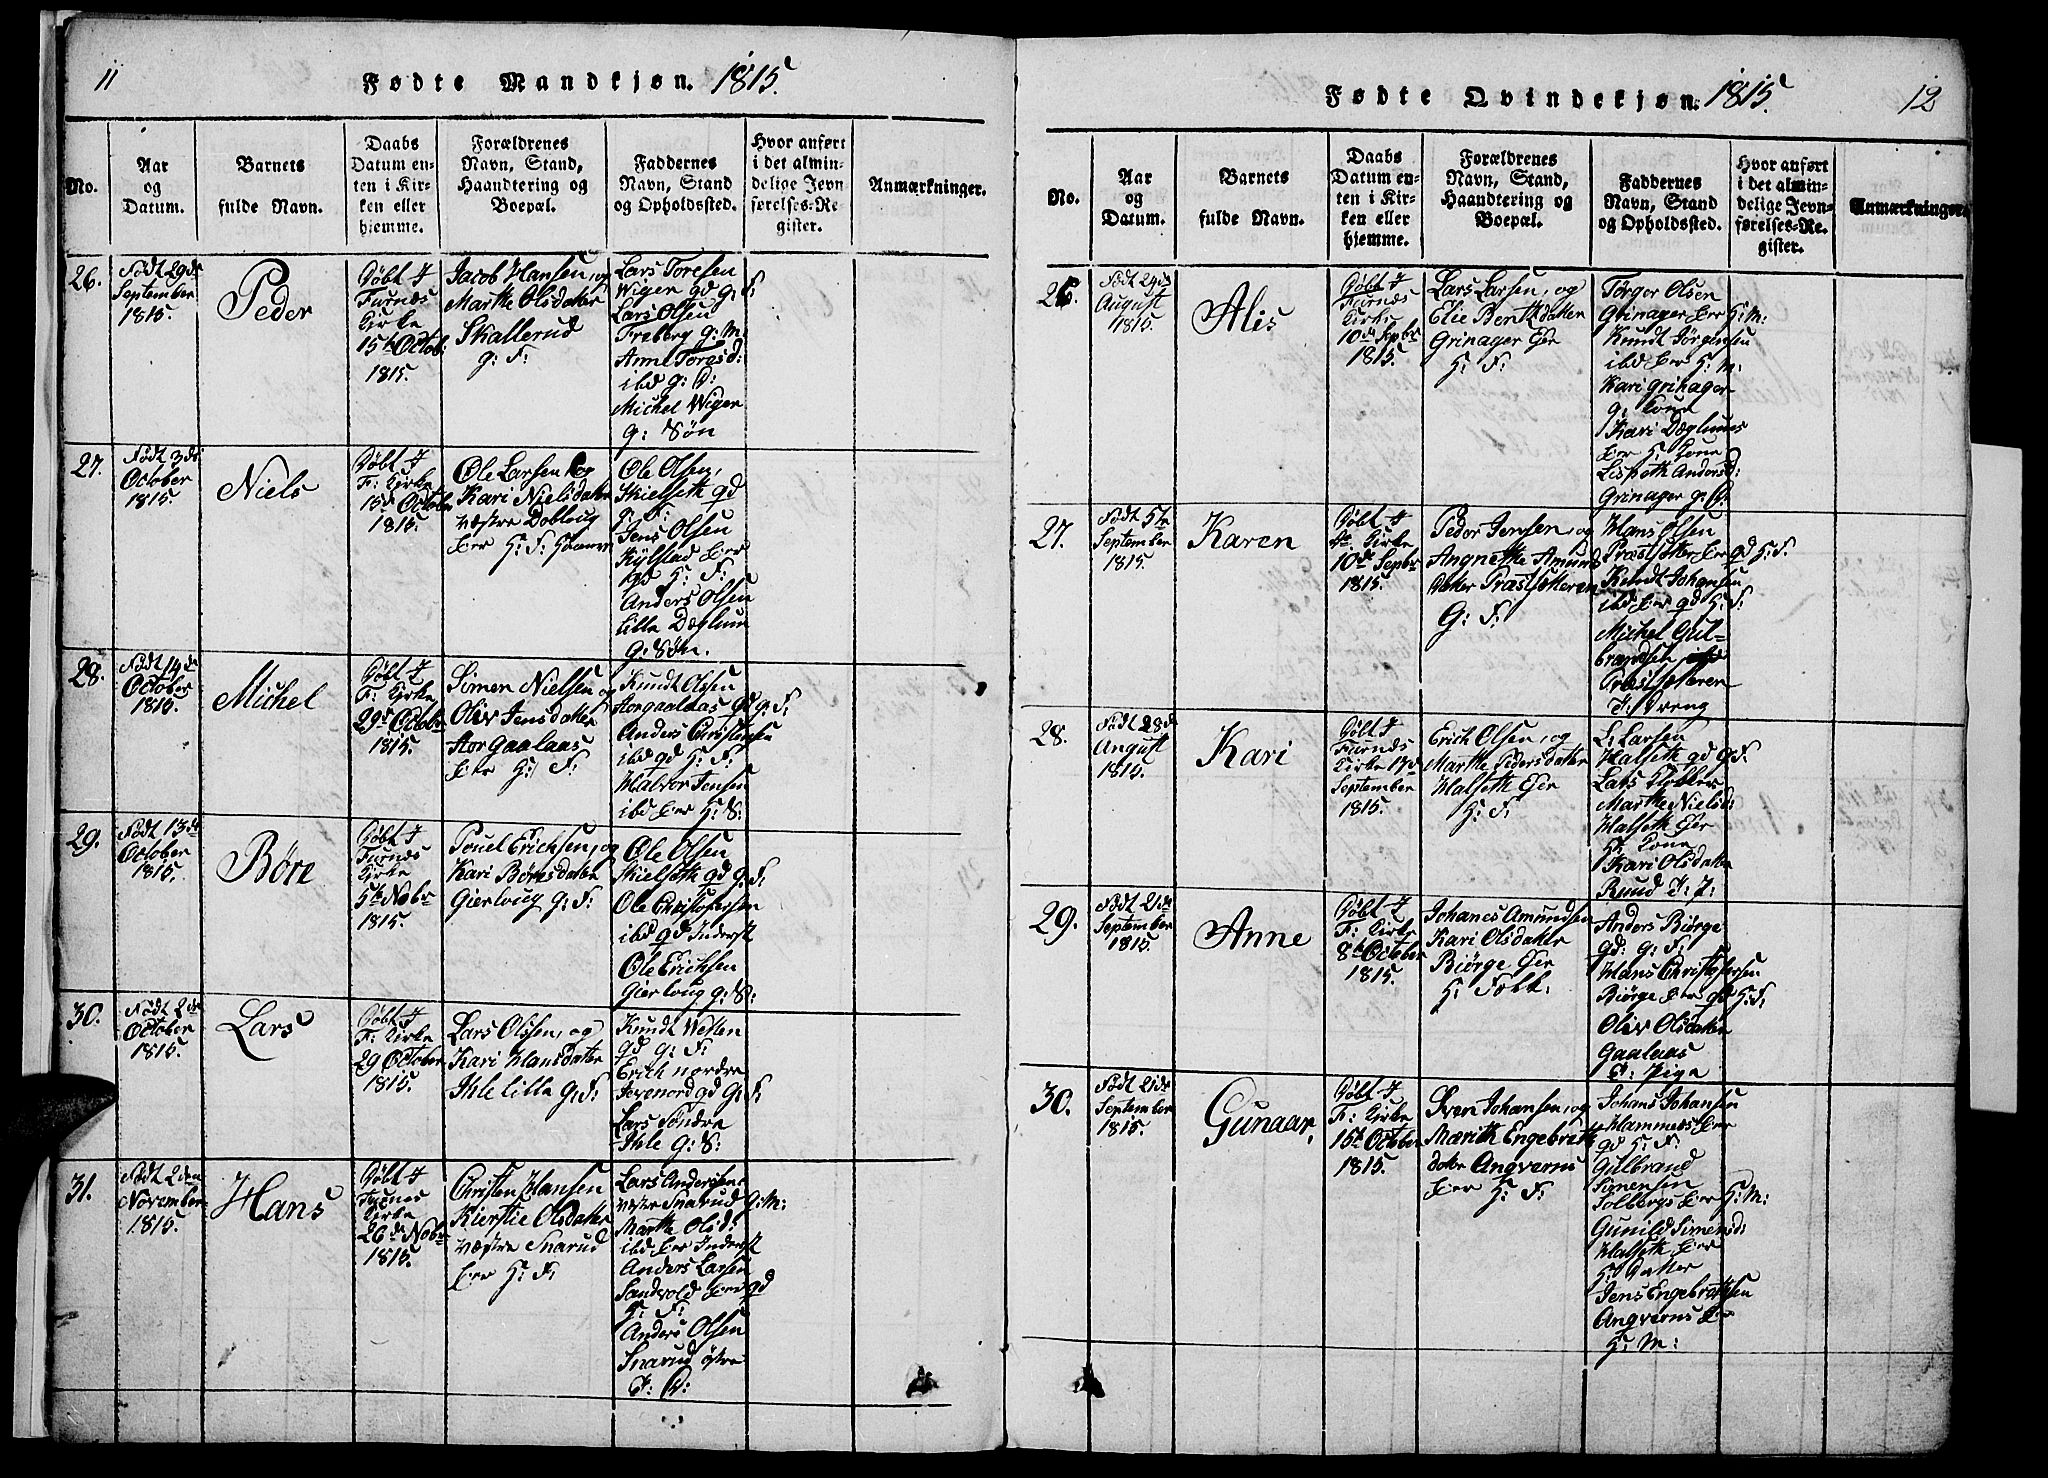 11
Fødte Mandkjøn. 1815.
No.
Aar
og
Datum.
Barnets
fulde Navn.
Daabs
Datum en-
ten i Kir-
ken eller
hjemme.
Forældrenes
Navn, Stand,
Haandtering og
Boepæl.
Faddernes
Navn, Stand
og Opholdssted.
Hvor anført
i det almin-
delige Jevn
førelses-Re-
gister.
Anmærkninger.
26.
Født 29de
September
1815.
Peder
Døbt I
Furnæs
Kirke
15de Octob:
1815.
Jacob Hansen, og
Marthe Olsdatter
Skallerud
g: F:
Lars Toresen
Wiger gd g: F:
Lars Olsen
Freberg g: M:
Anne Toresd:
ibd g: D:
Michel Wiger
g: Søn
27.
Født 3de
October
1815.
Niels
Døbt I
F: Kirke
15de October
1815.
Ole Larsen og
Kari Nielsdatter
væstre Dobloug
Eier H: F:
Ole Olsen,
Skielseth gd
g: F:
Jens Olsen
Kylstad Eier
gd H: F:
Anders Olsen
Lille Dæglum
g: Søn.
28.
Født 14de
October
1815.
Michel
Døbt I
F: Kirke
29de Octobr
1815.
Simen Nielsen og
Oliv Jensdatter
Storgaalaas
Eier H: F:
Knudt Olsen
Storgaalaas gd g: F:
Anders Christensen
ibd gd H: F:
Halvor Jensen
ibd Eier H: S:
29.
Født 13de
October
1815.
Børe
Døbt I
Furnæs
Kirke
5te Nobr
1815.
Pouel Erichsen, og
Kari Børesdatter
Gierloug g: F:
Ole Olsen
Skielseth gd g: F:
Ole Christophersen
ibd gd Inderst
Ole Erichsen
Gierloug g: S:
30.
Født 2de
October
1815.
Lars
Døbt I
F: Kirke
29 October
1815.
Lars Olsen, og
Kari Hansdatter
Ihle Lille g: F:
Knudt Westen
gd g: F:
Erich nordre
Jevenord gd g: F:
Lars Søndre
Ihle g: S:
31.
Født 2den
November
1815.
Hans
Døbt I
Furnes
Kirke
26de Nobr
1815.
Christen Hansen
Kierstie Olsdatter
væstre Snarud
Eier H: F:
Lars Andersen
vestre Snarud g: M:
Marthe Olsd:
ibd Eier Inderst
Anders Larsen
Sandvold Eier gd
H: F:
Anders Olsen
Snarud østre
I: D:
Fødte Qvindekjøn. 1815.
12
No.
Aar
og
Datum.
Barnets
fulde Navn.
Daabs
Datum en-
ten i Kir-
ken eller
hjemme.
Forældrenes
Navn, Stand,
Haandtering og
Boepæl.
Faddernes
Navn, Stand
og Opholdssted.
Hvor anført
i det almin-
delige Jevn-
førelses-Re-
gister.
Anmærkninger.
26.
Født 24de
August
1815.
Alis
Døbt I
Furnæs
Kirke
10de Septbr
1815.
Lars Larsen, og
Elie Berthdatter
Grinager Eier
H: F:
Törger Olsen
Grinager Eier H: M:
Knudt Jörgensen
ibd Eier H: M:
Kari Grinager
g: Kone
Kari Dæglums
Eier H: Kone
Lispeth Andersd:
Grinager g: D:
27.
Født 5te
September
1815.
Karen
Døbt I
F: Kirke
10de Septbr
1815.
Peder Jensen, og
Angnethe Amunds
datter Præstsæteren
G: F:
Hans Olsen
Præstsæter Eier gd H: F:
Knudt Johansen
ibd Eier gd H: F:
Michel Gul-
brandsen
Præstsæteren
I: Dreng
28.
Født 28de
August
1815.
Kari
Døbt I
Furnæs
Kirke 17de
September
1815.
Erich Olsen, og
Marthe Pedersdatter
Halseth Eier
H: F:
L: Larsen
Halseth gd g: F:
Lars Klokker
Marthe Nielsd:
Halseth Eier
H: Kone
Kari Olsdatter
Ruud I: P:
29.
Født 21de
September
1815.
Anne
Døbt I
F: Kirke
8de October
1815.
Johanes Amundsen
Kari Olsdatter
Biørge Eier
H: Folk.
Anders Biørge
gd: g: F:
Hans Christophersen
Biørge Eier gd H: F:
Oliv Olsdatter
Gaalaas
I: Pige
30.
Født 21de
September
1815.
Gunaar,
Døbt I
F: Kirke
15de October
1815.
Sven Johansen, og
Marith Engebrits
datter Angverns
Eier H: F:
Johans Johansen
Hammers Eier
gd H: F:
Gulbrand
Simensen
Solbergs Eier H: M:
Gunild Simensd:
Halseth Eier
H: Datter
Jens Engebretsen
Angverns Eier
H: M: